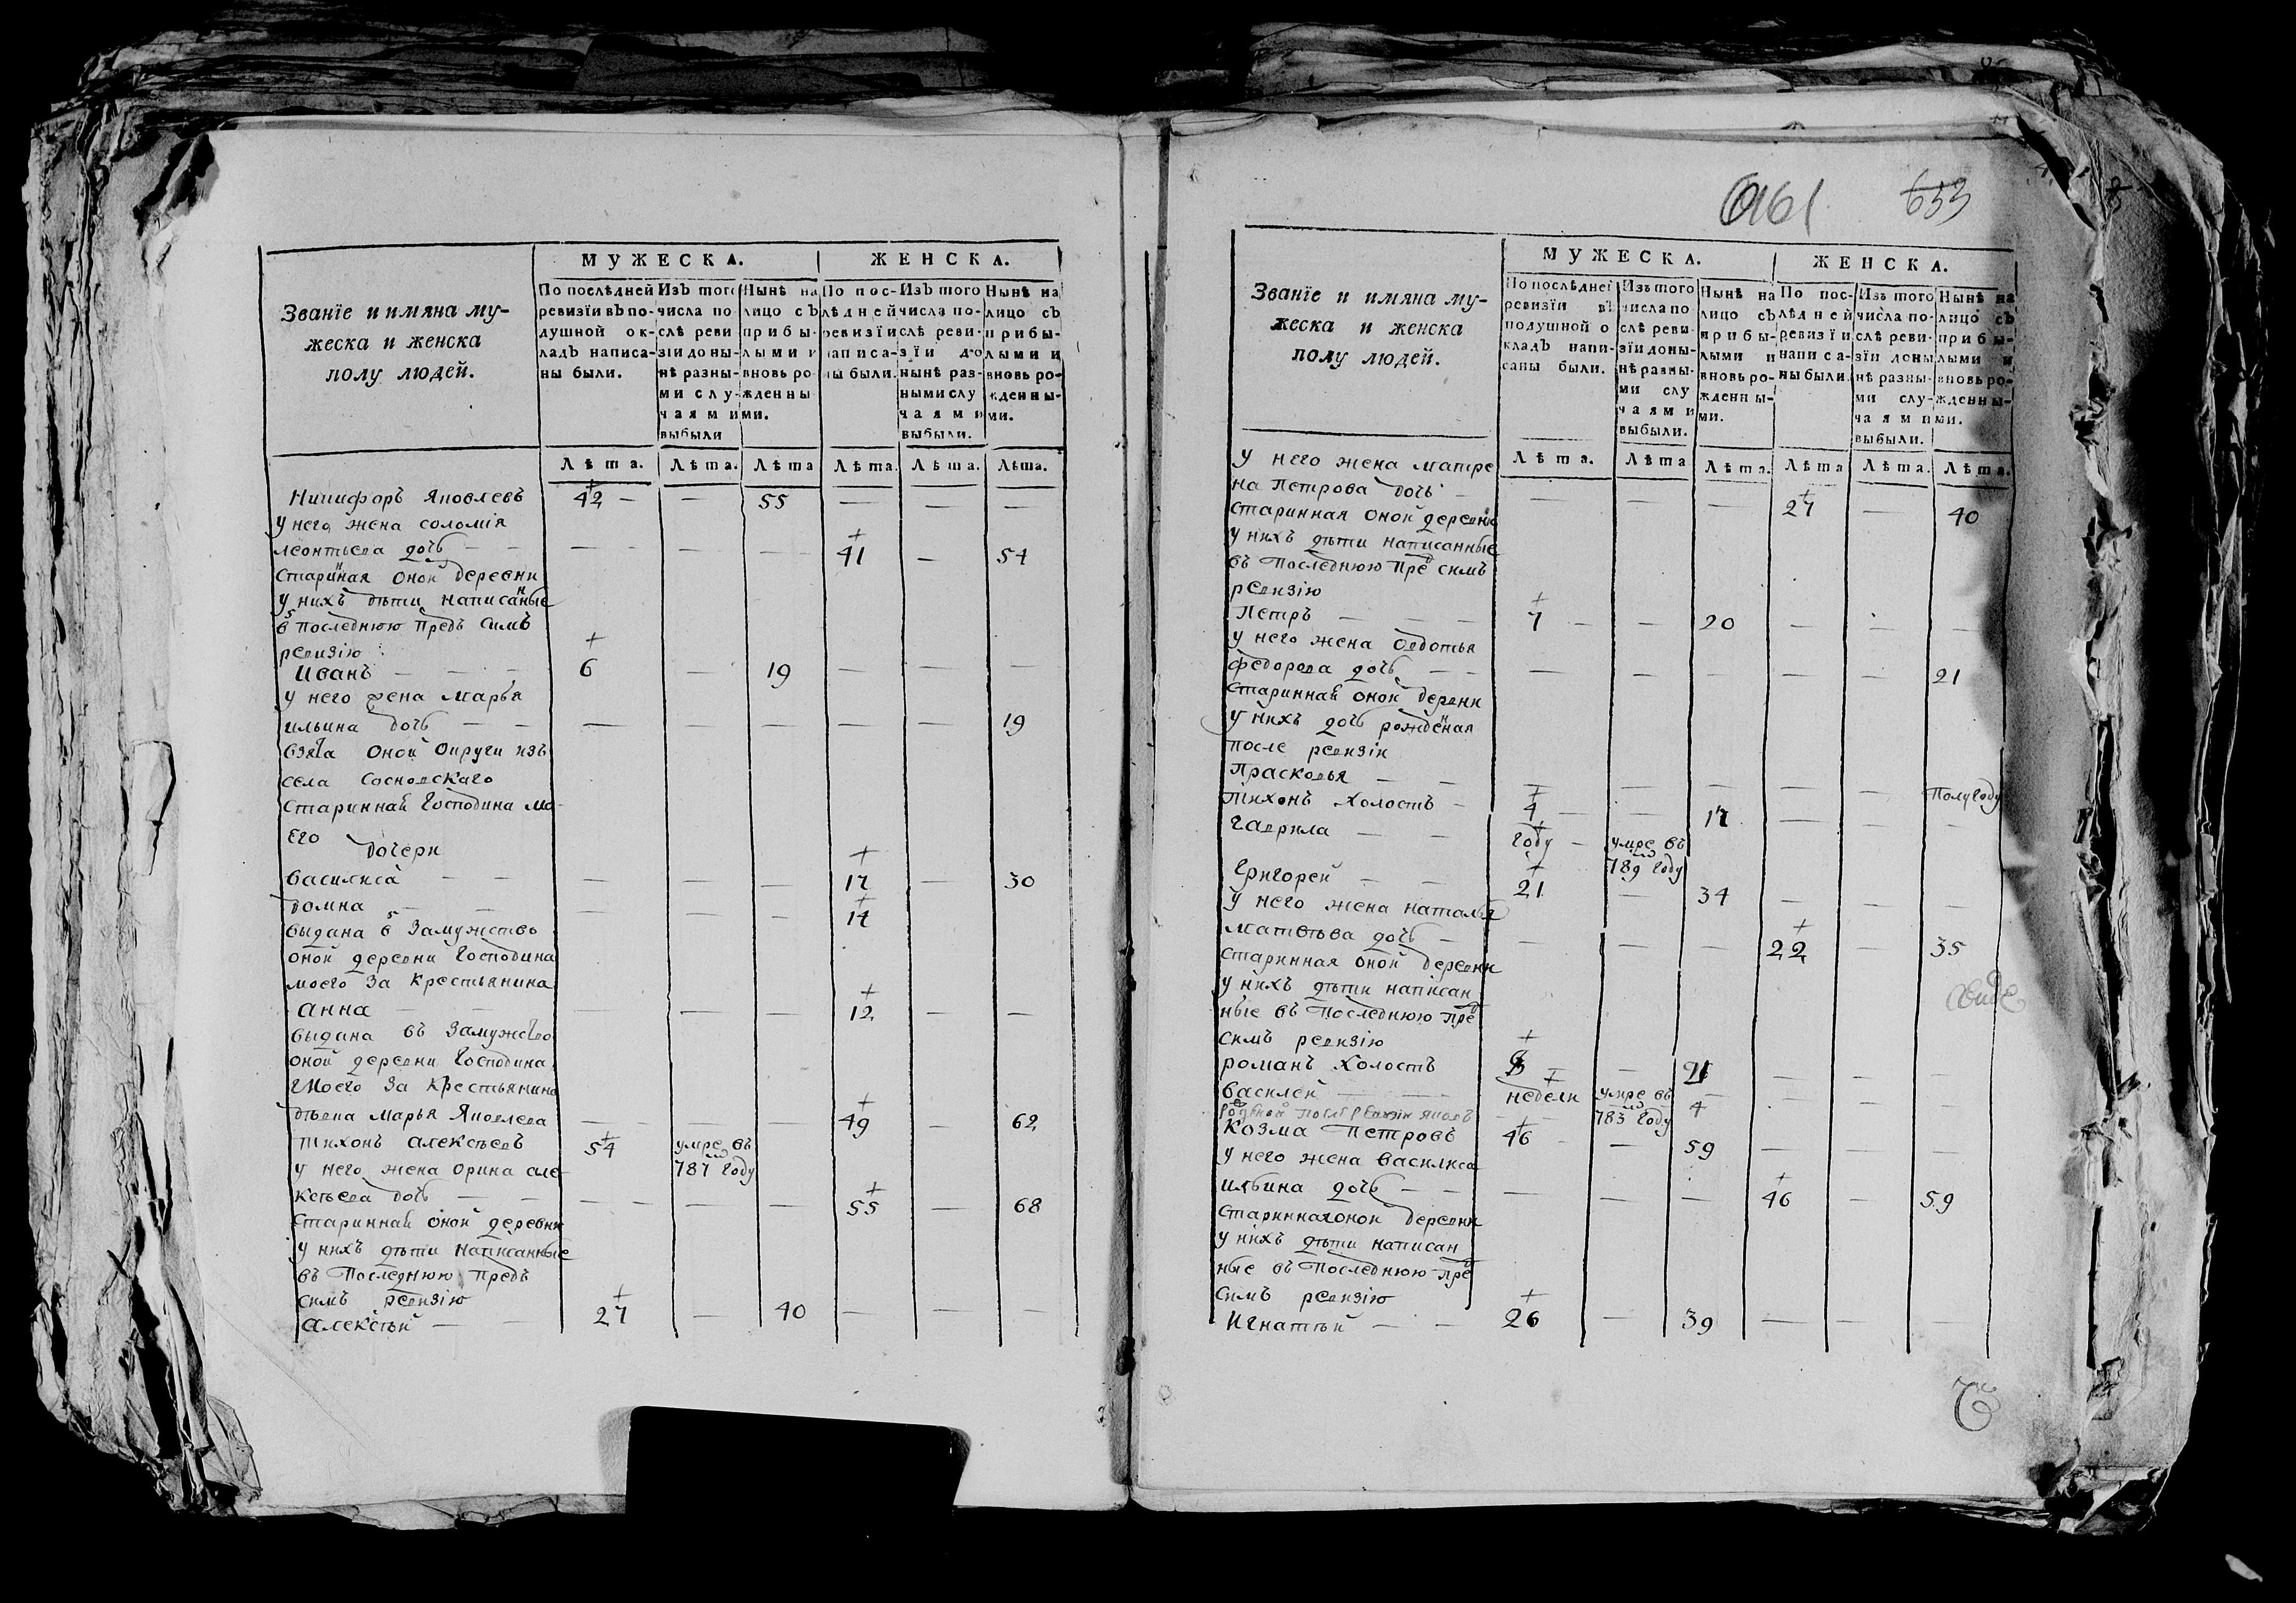 МУЖЕСКА. ЖЕНСКА.
Званїе и имяна му-
жеска и женска
полу людей.
По послѣдней
ревизїи въ по-
душной ок-
ладъ написа-
ны были.
Изъ того
числа по
слѣ реви
зїи до ны-
нѣ разны-
ми слу-
чаями
выбыли
Нынѣ на
лицо съ
прибы-
лыми и
вновь ро
жденны
ми.
По пос-
лѣдней
ревизїи
написа-
ны были.
Изъ того
числа по-
слѣ реви-
зїи до
нынѣ раз-
ными слу
чаями
выбыли.
Нынѣ на
лицо съ
прибы-
лыми и
вновь ро-
жденны-
ми.
Лѣта. Лѣта. Лѣта Лѣта. Лѣта. Лѣта.
Никифоръ Яковлевъ 42 — — 55 — — —
У него жена соломія
леонтьева дочь — — — — — 41 — 54
Старинная оной деревни
у нихъ дѣти написанные
в последнюю предъ симъ
ревизію
Иванъ — — 6 — 19 — — —
у него жена марья
ильина дочь — — — — — — — 19
взята оной округи изъ
села Сосновскаго
Стариннаѧ Господина мо-
его
дочери
василиса — — — — — 17 — 30
домна — — — — — 17
выдана в замужство
оной деревни Господина
моего за крестьянина
анна — — — — 12 — —
выдана въ замужство
оной деревни Господина
моего за крестьянина
дѣвка марья Яковлева — — — 49 — 62
тихонъ алексѣевъ 54 умре въ
787 году
у него жена орина але
ксѣева дочь — — — — — 55 — 68
Стариннаѧ оной деревни
у нихъ дѣти написанные
въ последнюю предъ
симъ ревизію
алексѣй — — 27 — 40 — — —
0161 633
МУЖЕСКА. ЖЕНСКА.
Званїе и имяна му-
жеска и женска
полу людей.
По послѣдней
ревизїи въ
подушной о
кладъ напи-
саны были.
Изъ того
числа по
слѣ реви-
зїи до ны-
нѣ разны-
ми слу
чаями
выбыли.
Нынѣ на
лицо съ
прибы-
лыми и
вновь ро-
жденны-
ми.
По пос-
лѣдней
ревизїи
написа-
ны были.
Изъ того
числа по-
слѣ реви-
зїи до ны
нѣ разны-
ми слу-
чаями
выбыли.
Нынѣ на
лицо съ
прибы-
лыми и
вновь ро-
жденны-
ми.
Лѣта. Лѣта Лѣта. Лѣта Лѣта. Лѣта.
У него жена матре
на Петрова дочь — — — — 27 — 40
старинная оной деревни
у нихъ дѣти написанные
въ последнюю пред симъ
ревизію
Петръ — — 7 — — 20 — — —
у него жена Овдотья
федорова дочь — — — — — — — 21
стариннаѧ оной деревни
у нихъ дочь рожденная
после ревизіи
Прасковья — — — — — — — полугоду
тихонъ холостъ — 4 — — 17 — — —
Гаврила — — году — умре въ
789 году
Григорей — — 21 — 34 — — —
у него жена наталья
матвѣва дочь — — — — 22 — 35
старинная оной деревни
у нихъ дѣти написан
ные въ последнюю пред
симъ ревизію
романъ холостъ 8 — — 21 — — —
василей — — недели умре въ
783 году
рожденой после ревизіи яковъ 4
Козма Петровъ 46 — — 59 — — —
у него жена василиса
ильина дочь — — — — — 46 — 59
стариннаѧ оной деревни
у нихъ дѣти написан
ные въ последнюю пред
симъ ревизію
Игнатѣй — — 26 — 39 — — —